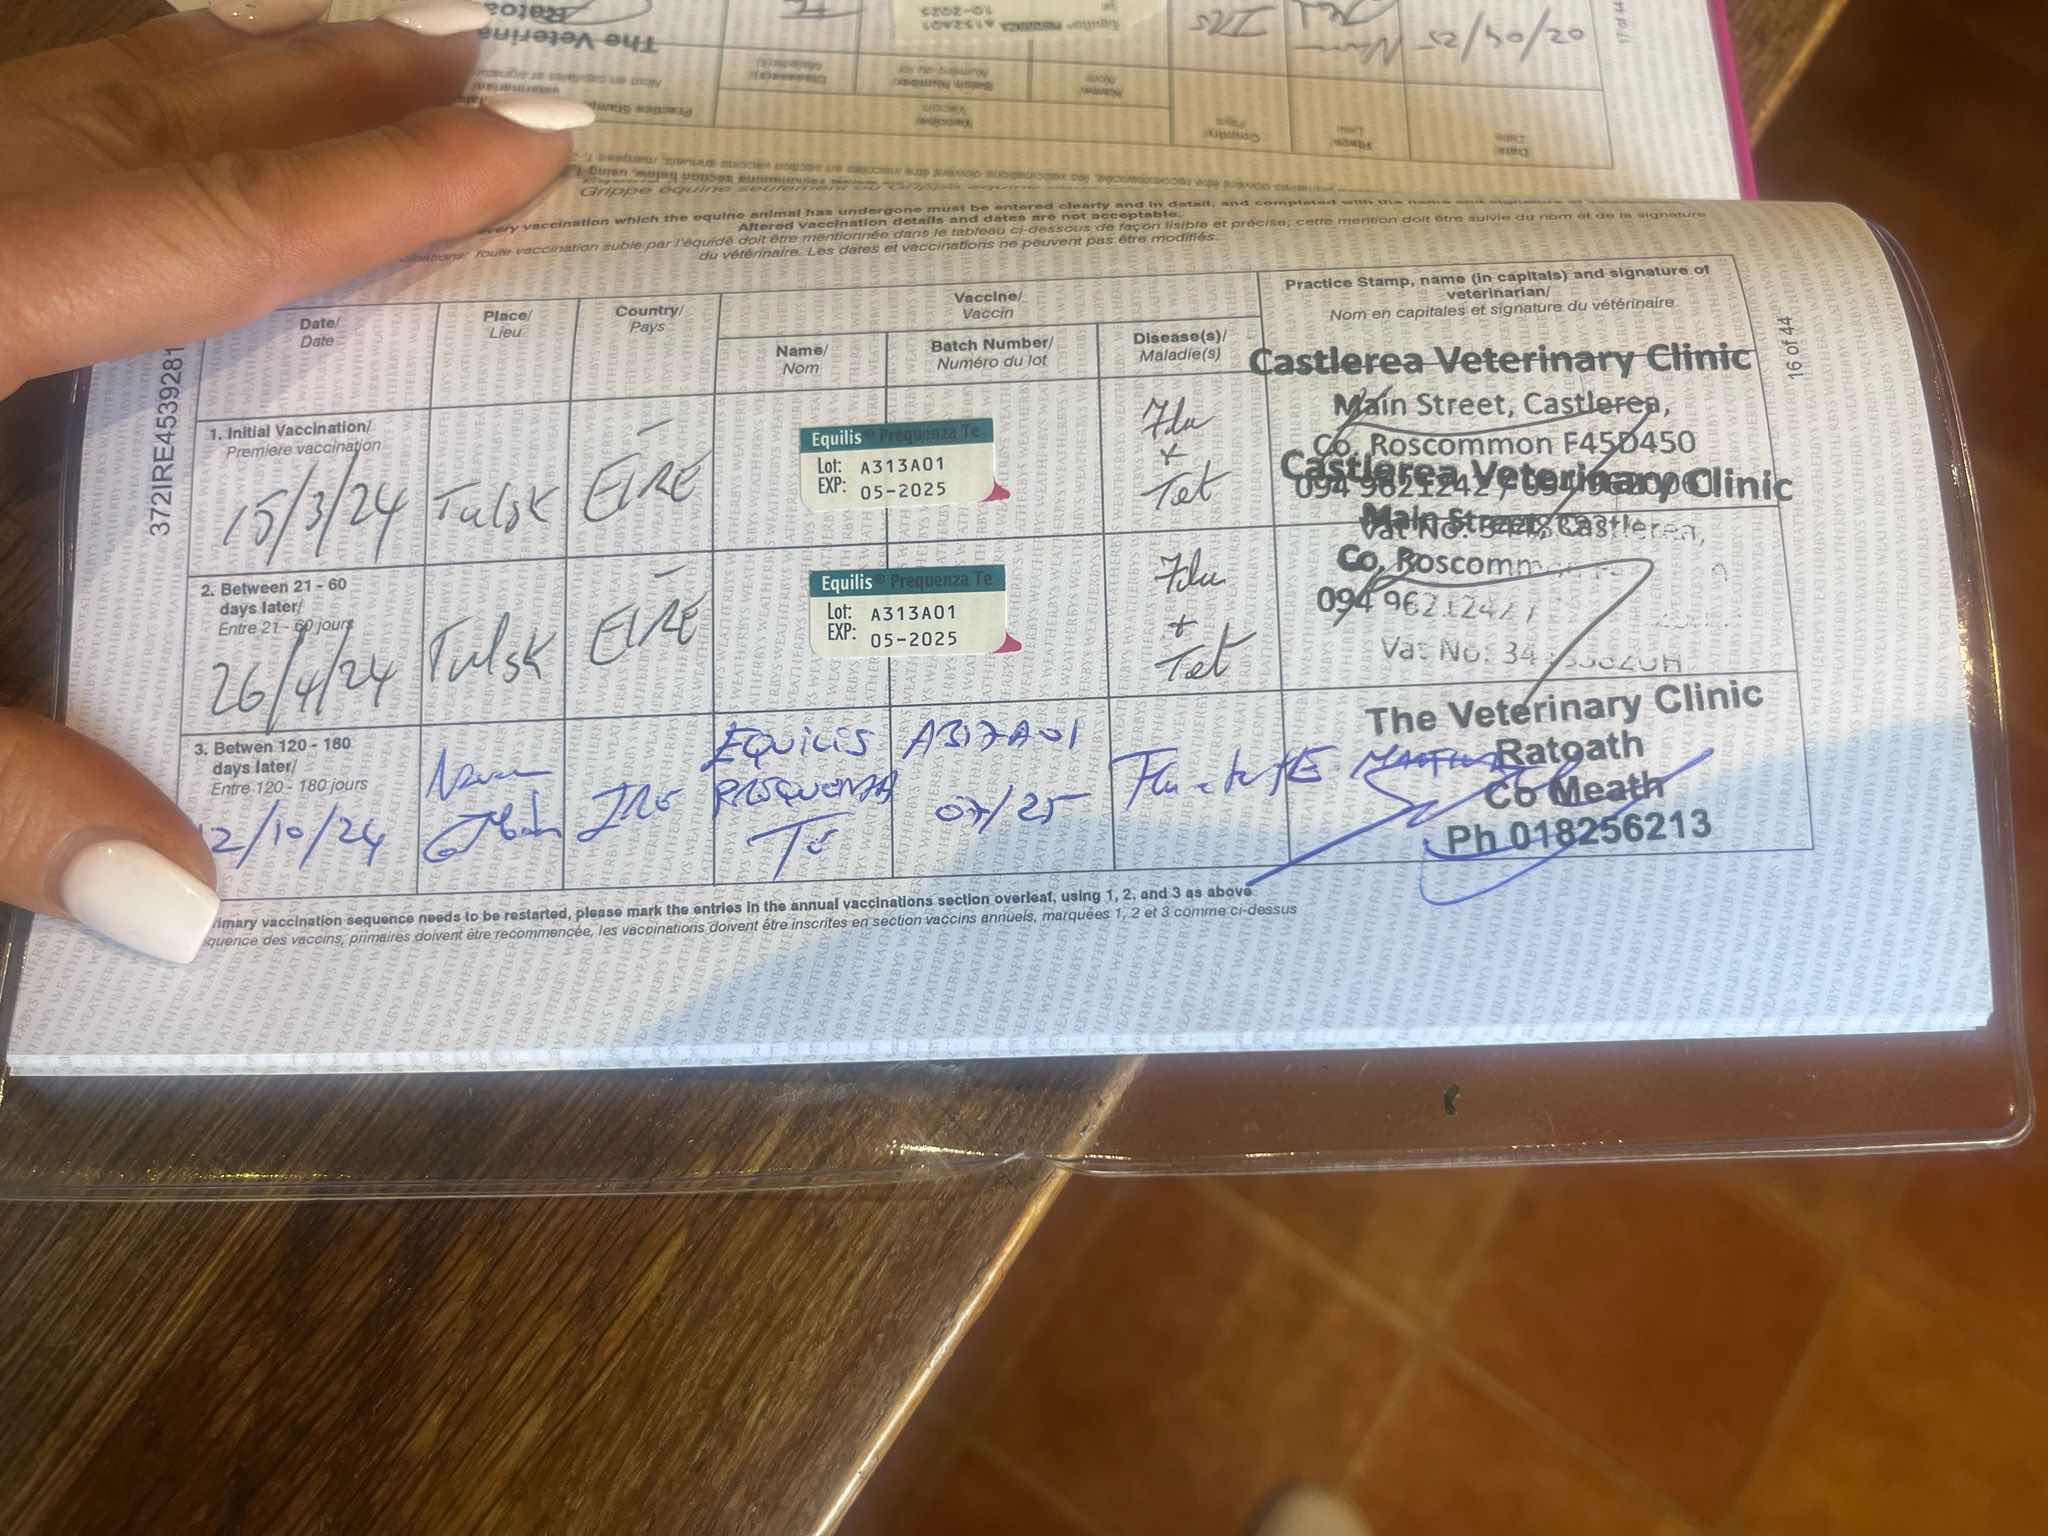 The Veterina
Ratoa
10-2025
A152A01
IRE
20/04/25
17 of 44
Practice Stamp
Nom en capitales et signature
Disease(s)/
Maladie(s)
Batch Number/
Numéro du lot
Name/
Nom
Vaccine/
Vaccin
Country/
Pays
Place/
Lieu
Date/
Date
every vaccination which the equine animal has undergone must be entered clearly and in detail, and completed with the name and signature of
Altered vaccination details and dates are not acceptable.
toute vaccination subie par l'équidé doit être mentionnée dans le tableau ci-dessous de façon lisible et précise; cette mention doit être suivie du nom et de la signature
du vétérinaire. Les dates et vaccinations ne peuvent pas être modifiés.
372IRE4539281
16 of 44
Date/
Date
Place/
Lieu
Country/
Pays
Vaccine/
Vaccin
Name/
Nom
Batch Number/
Numéro du lot
Disease(s)/
Maladie(s)
Practice Stamp, name (in capitals) and signature of
veterinarian/
Nom en capitales et signature du vétérinaire
1. Initial Vaccination/
Première vaccination
15/3/24
Tulsk
EIRE
Equilis Prequenza Te
Lot: A313A01
EXP: 05-2025
Flu
+
Tet
Castlerea Veterinary Clinic
Main Street, Castlerea,
Co, Roscommon F45D450
094 9621242
2. Between 21 - 60
days later/
Entre 21 - 60 jours
26/4/24
Tulsk
EIRE
Equilis Prequenza Te
Lot: A313A01
EXP: 05-2025
Flu
+
Tet
Castlerea Veterinary Clinic
Main Street, Castlerea,
Co, Roscomm
094 9621242
Vat No: 34
3. Betwen 120 - 180
days later/
Entre 120 - 180 jours
2/10/24
IRE
EQUILIS
PREQUENZA
TE
A317A01
07/25
The Veterinary Clinic
Ratoath
Co Meath
Ph 018256213
rimary vaccination sequence needs to be restarted, please mark the entries in the annual vaccinations section overleaf, using 1, 2, and 3 as above
quence des vaccins, primaires doivent être recommencée, les vaccinations doivent être inscrites en section vaccins annuels, marquées 1, 2 et 3 comme ci-dessus